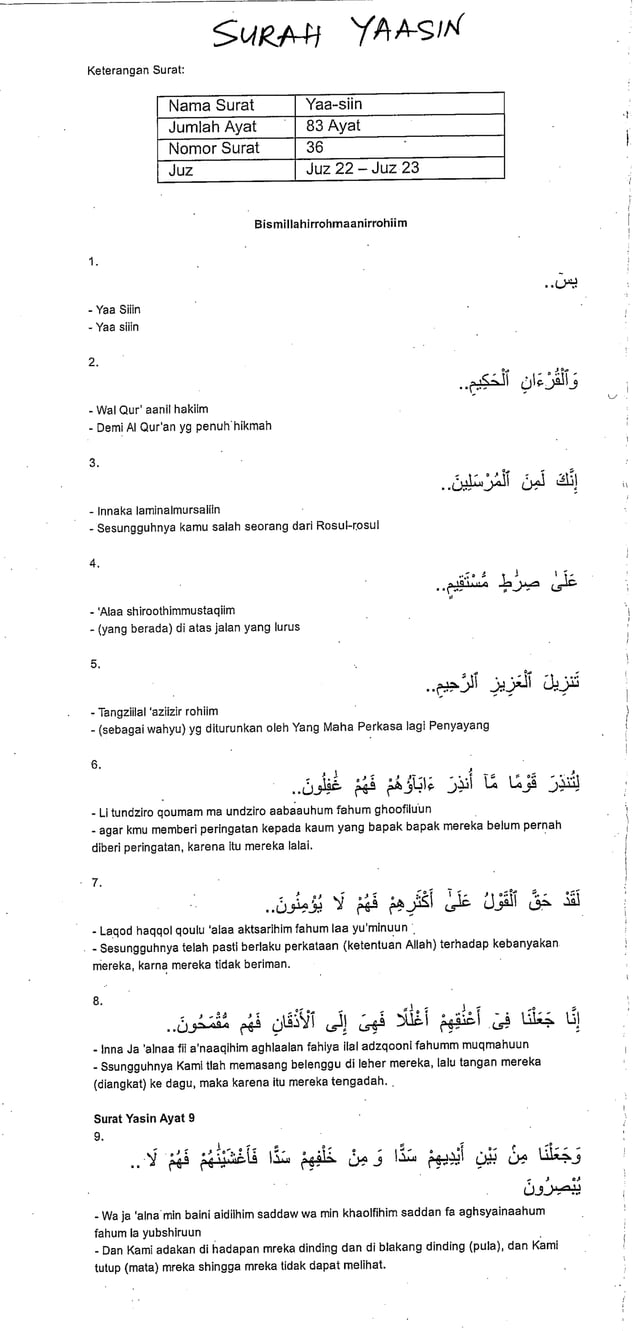 SURAH YAASIN
Keterangan Surat:
Nama Surat Yaa-siin
Jumlah Ayat 83 Ayat
Nomor Surat 36
Juz Juz 22 – Juz 23
Bismillahirrohmaanirrohiim
1.
يسٓ..
- Yaa Siiin
- Yaa siiin
2.
وَٱلْقُرْءَانِ ٱلْحَكِيمِ..
- Wal Qur' aanil hakiim
- Demi Al Qur'an yg penuh hikmah
3.
إِنَّكَ لَمِنَ ٱلْمُرْسَلِينَ..
- Innaka laminalmursaliin
- Sesungguhnya kamu salah seorang dari Rosul-rosul
4.
عَلَىٰ صِرَٰطٍ مُّسْتَقِيمٍ..
- 'Alaa shiroothimmustaqiim
- (yang berada) di atas jalan yang lurus
5.
تَنزِيلَ ٱلْعَزِيزِ ٱلرَّحِيمِ..
- Tangziilal 'aziizir rohiim
- (sebagai wahyu) yg diturunkan oleh Yang Maha Perkasa lagi Penyayang
6.
لِتُنذِرَ قَوْمًا مَّآ أُنذِرَ ءَابَآؤُهُمْ فَهُمْ غَٰفِلُونَ..
- Li tundziro qoumam ma undziro aabaauhum fahum ghoofiluun
- agar kmu memberi peringatan kepada kaum yang bapak bapak mereka belum pernah
diberi peringatan, karena itu mereka lalai.
7.
لَقَدْ حَقَّ ٱلْقَوْلُ عَلَىٰٓ أَكْثَرِهِمْ فَهُمْ لَا يُؤْمِنُونَ..
- Laqod haqqol qoulu 'alaa aktsarihim fahum laa yu'minuun
- Sesungguhnya telah pasti berlaku perkataan (ketentuan Allah) terhadap kebanyakan
mereka, karna mereka tidak beriman.
8.
إِنَّا جَعَلْنَا فِىٓ أَعْنَٰقِهِمْ أَغْلَٰلًا فَهِىَ إِلَى ٱلْأَذْقَانِ فَهُم مُّقْمَحُونَ..
- Inna Ja 'alnaa fii a'naaqihim aghlaalan fahiya ilal adzqooni fahumm muqmahuun
- Ssungguhnya Kami tlah memasang belenggu di leher mereka, lalu tangan mereka
(diangkat) ke dagu, maka karena itu mereka tengadah.
Surat Yasin Ayat 9
9.
وَجَعَلْنَا مِنۢ بَيْنِ أَيْدِيهِمْ سَدًّا وَ مِنْ خَلْفِهِمْ سَدًّا فَأَغْشَيْنَٰهُمْ فَهُمْ لَا ..
يُبْصِرُونَ
- Wa ja 'alna min baini aidiihim saddaw wa min khaolfihim saddan fa aghsyainaahum
fahum la yubshiruun
- Dan Kami adakan di hadapan mreka dinding dan di blakang dinding (pula), dan Kami
tutup (mata) mreka shingga mreka tidak dapat melihat.